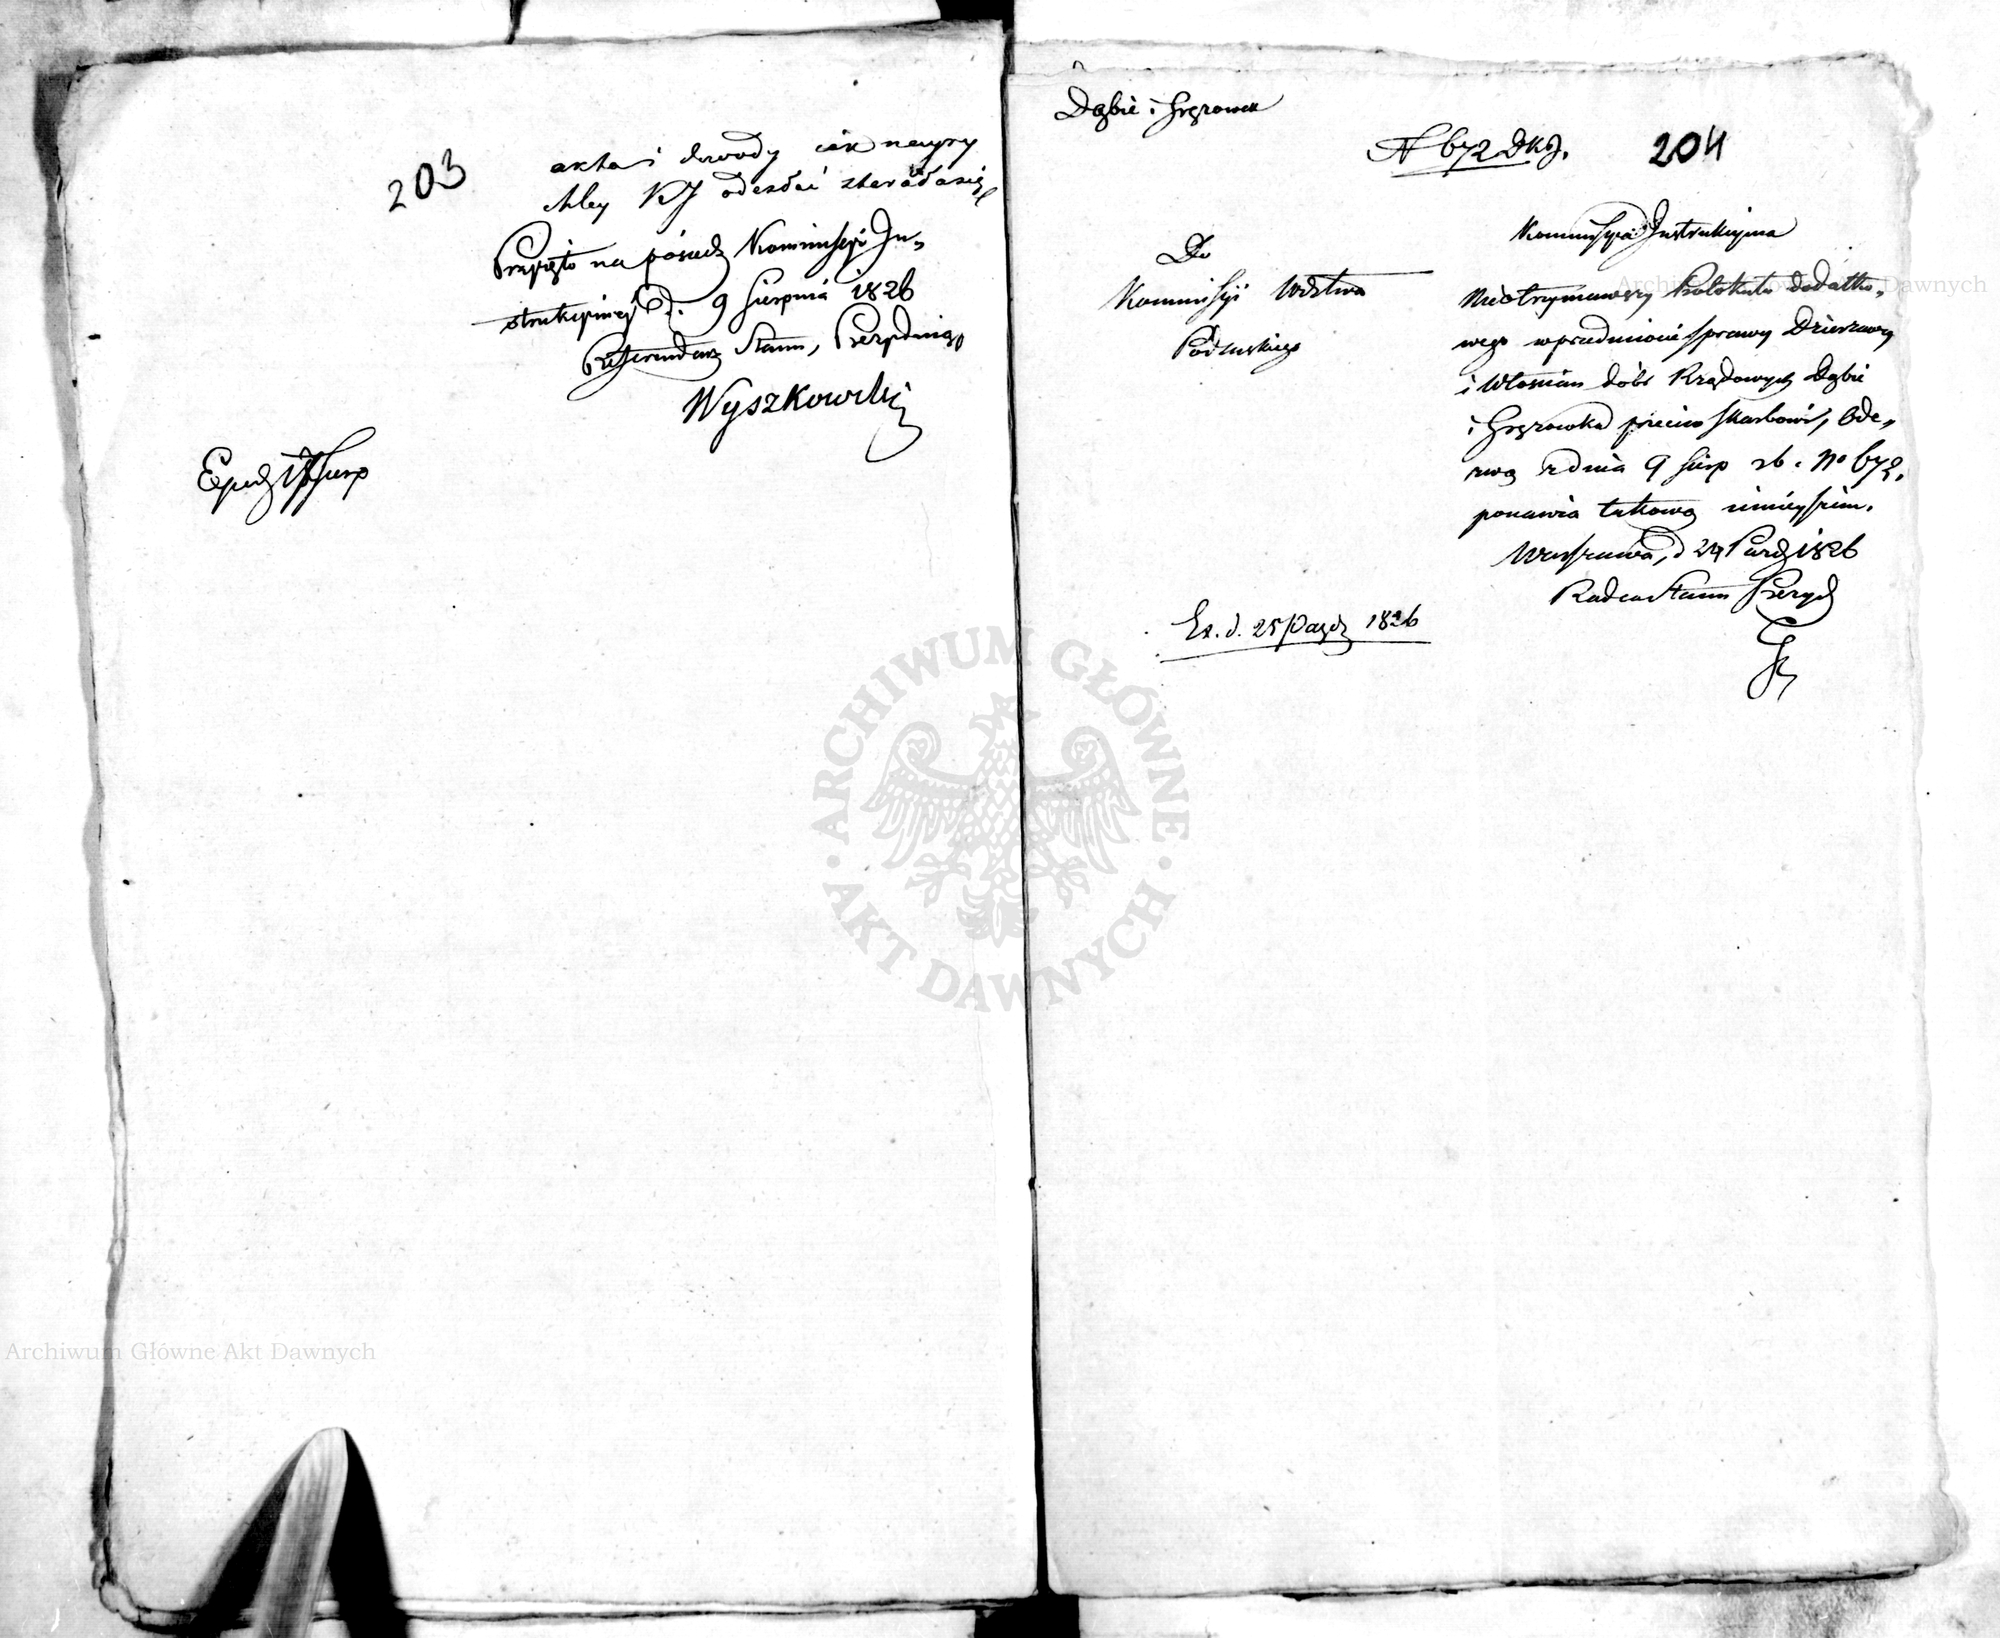 203
akta i dowody iak nayry
chley KJ odesłać starała się
Przyięto na posiedz Kommissyi In„
strukcyinéy d. 9 Sierpnia 1826
Referendarz Stanu, Prezyduiąc
Wyszkowski
Exped 17 Sierp
Dąbie i Gręzówka
N 672 DKJ. 204
Kommissyia Instrukcyina
Do
Kommissyi Wdztwa
Podlaskiego
Nieotrzymawszy Protokułu dodatko„
wego w przedmiocie sprawy Dzierżawcy
i Włościan dóbr Rządowych Dąbie
i Gręzówka przeciw Skarbowi, Ode„
zwą z dnia 9 Sierp rb. No 672.
ponawia takową ninieyszem.
Warszawa, d 24 Paźdz 1826
Radca Stanu Prezyd
Ex. d. 25 Pazdz 1826
Archiwum Główne Akt Dawnych
Archiwum Główne Akt Dawnych
ARCHIWUM GŁÓWNE
AKT DAWNYCH